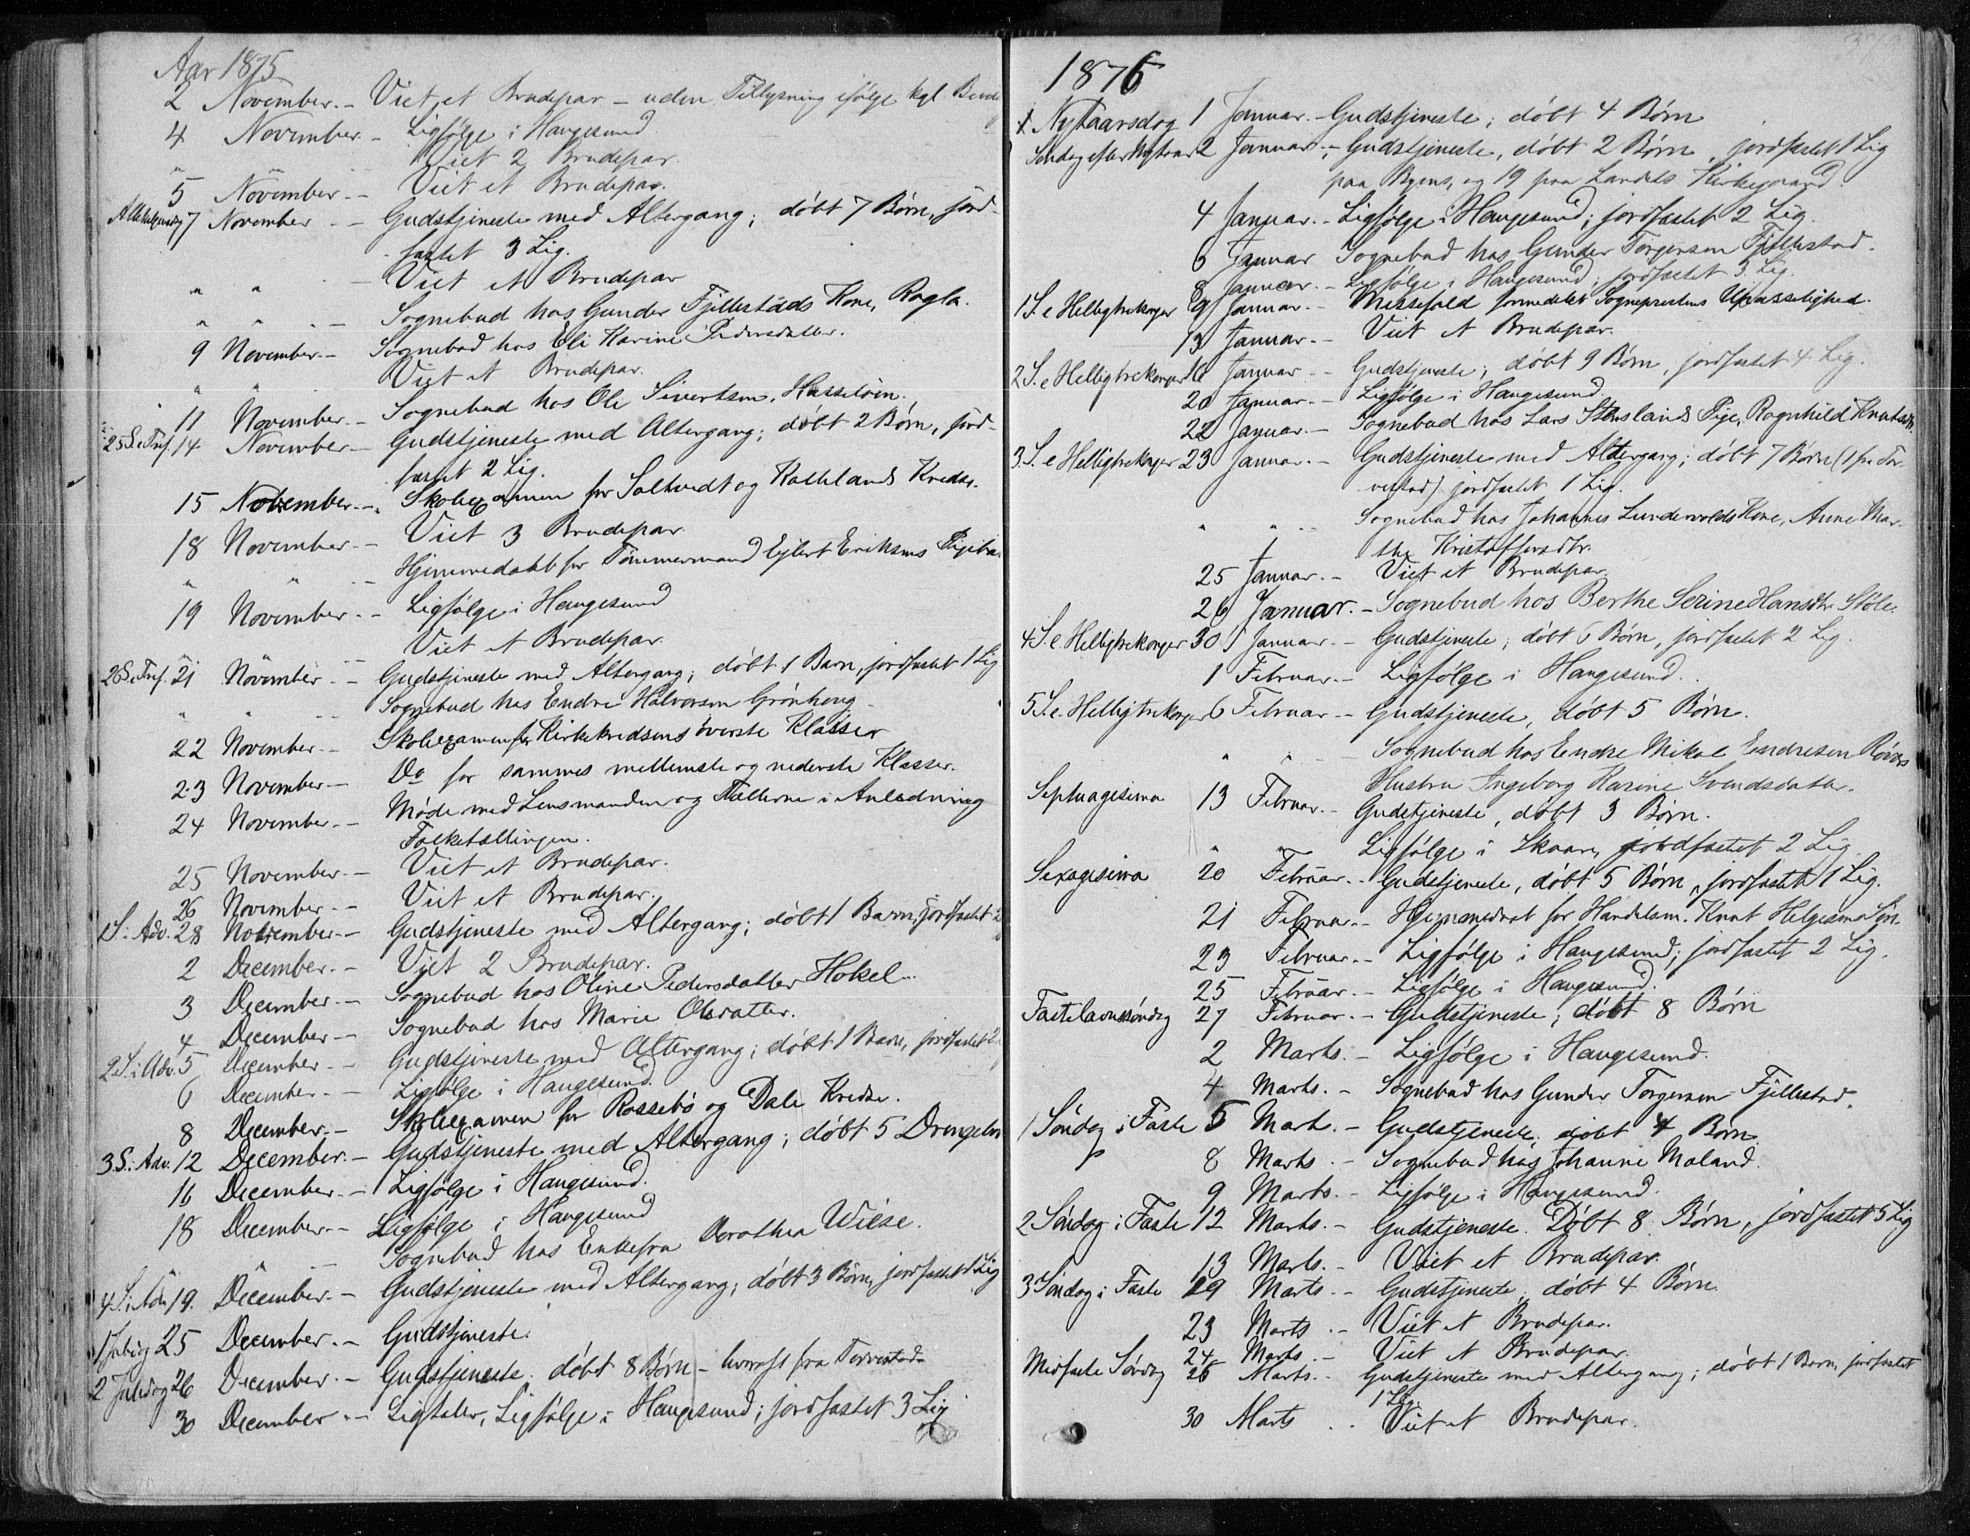 Aar 1875
2 November. - Viet et Brudepar - uden Tillysning ifølge kgl.
4 November - Ligfølge i Haugesund.
" " - Viet 2 Brudepar.
5 November - Viet et Brudepar.
7 November - Gudstjeneste med Altergang; døbt 7 Børn, jord-
fastet 3 Lig.
" " - Viet et Brudepar
" " - Sognebud hos Gunder Fjellestads Kone, Ragla.
9 November - Sognebud hos Eli Karine Pedersdatter.
" " Viet et Brudepar.
11 November - Sognebud hos Ole Sivertsen, Hasseløen.
25 S. e Trif. 14 November - Gudstjeneste med Altergang; døbt 2 Børn, jord-
fastet 2 Lig.
15 November - Skolexamen for Saltvedt og Kallelands Kredse.
18 November - Viet 3 Brudepar
" " - Hjemmedaab for Tømmermand Ejlert Eriksens
19 November - Ligfølge i Haugesund
" " - Viet et Brudepar.
26 S. e Trif. 21 November - Gudstjeneste med Altergang; døbt 1 Barn, jordfastet 1 Lig
" " - Sognebud hos Endre Halvorsen Grønhoug
22 November - Skolexamen for Kirkekredsens øverste Klasser
23 November - Do for sammes mellemste og nederste Klasser.
24 November - Møde med Lensmanden og Tællerne i Anledning
Folketællingen.
25 November - Viet et Brudepar.
26 November - Viet et Brudepar.
1 S. i Adv. 28 November - Gudstjeneste med Altergang; døbt 1 Barn, jordfastet 2
2 December - Viet 2 Brudepar.
3 December - Sognebud hos Oline Pedersdatter Hokel
4 December - Sognebud hos Marie Olsdatter.
2 S. i Adv. 5 December - Gudstjeneste med Altergang; døbt 1 Barn, jordfastet 2
6 December - Ligfølge i Haugesund.
8 December - Skolexamen for Rossebø og Dale Kredse.
3 S. i Adv. 12 December - Gudstjeneste med Altergang; døbt 5
16 December - Ligfølge i Haugesund.
18 December - Ligfølge i Haugesund
" " - Sognebud hos Enkefru Dorothea Wiese.
4 S. i Adv. 19. December - Gudstjeneste med Altergang; døbt 3 Børn, jordfastet 1 Lig
1 Juledag 25 December - Gudstjeneste.
2 Juledag 26 December - Gudstjeneste, døbt 8 Børn - hvoraf 1 fra Torvestad
30 December - Ligtaler, Ligfølge i Haugesund; jordfastet 3 Lig
1876
Nytaarsdag 1 Januar. - Gudstjeneste; døbt 4 Børn
Søndag efter Nytaar 2 Januar - Gudstjeneste, døbt 2 Børn, jordfastet 1 Lig
paa Byens, og 19 paa Landets Kirkegaard.
4 Januar - Ligfølge i Haugesund; jordfastet 2 Lig.
6 Januar Sognebud hos Gunder Torgersen Fjellestad.
8 Januar - Ligfølge i Haugesund; jordfastet 3 Lig.
1 S. e Helligtrekonger 9 Januar - Messefald formedelst Sognepræstens Upasselighed.
13 Januar - Viet et Brudepar.
2 S. e Helligtrekonger 16 Januar - Gudstjeneste; døbt 9 Børn, jordfastet 4 Lig.
20 Januar - Ligfølge i Haugesund
22 Januar - Sognebud hos Lars Stenslands Pige, Ragnhild Knutsdtr.
3 S. e Helligtrekonger 23 Januar - Gudstjeneste med Altergang; døbt 7 Børn (1 fra Tor-
vestad) jordfastet 1 Lig.
" " - Sognebud hos Johannes Lundervolds Kone, Anne Mar-
the Kristoffersdtr.
25 Januar - Viet et Brudepar.
26 Januar - Sognebud hos Berthe Serine Hansdtr. Støle.
4 S. e. Helligtrekonger 30 Januar - Gudstjeneste; døbt 6 Børn, jordfastet 2 Lig.
1 Februar - Ligfølge i Haugesund.
5 S. e. Helligtrekonger 6 Februar - Gudstjeneste, døbt 5 Børn.
" " - Sognebud hos Endre Mikal Endresen Røværs
Hustru Ingeborg Karine Svendsdatter.
Septuagesima 13 Februar - Gudstjeneste, døbt 3 Børn.
" " Ligfølge i Skaare, jordfastet 2 Lig
Sexagesima 20 Februar - Gudstjeneste, døbt 5 Børn, jordfastet 1 Lig.
21 Februar - Hjemmedaab for Handelsm. Knut Helgesens Søn.
23 Februar - Ligfølge i Haugesund; jordfastet 2 Lig.
25 Februar - Ligfølge i Haugesund.
Fastelavnssøndag 27 Februar - Gudstjeneste; døbt 8 Børn
2 Marts. - Ligfølge i Haugesund.
4 Marts. - Sognebud hos Gunder Torgersen Fjellestad.
1 Søndag i Faste 5 Marts. - Gudstjeneste, døbt 4 Børn
8 Marts. - Sognebud hos Johanne Moland.
9 Marts. - Ligfølge i Haugesund.
2 Søndag i Faste 12 Marts. - Gudstjeneste. Døbt 8 Børn, jordfastet 5 Lig
13 Marts. - Viet et Brudepar.
3 Søndag i Faste 19 Marts. - Gudstjeneste, døbt 4 Børn
23 Marts. - Viet et Brudepar.
24 Marts. - Viet et Brudepar.
Midfaste Søndag 26 Marts. - Gudstjeneste med Altergang; døbt 1 Barn, jordfastet
1 Lig.
30 Marts - Viet et Brudepar.